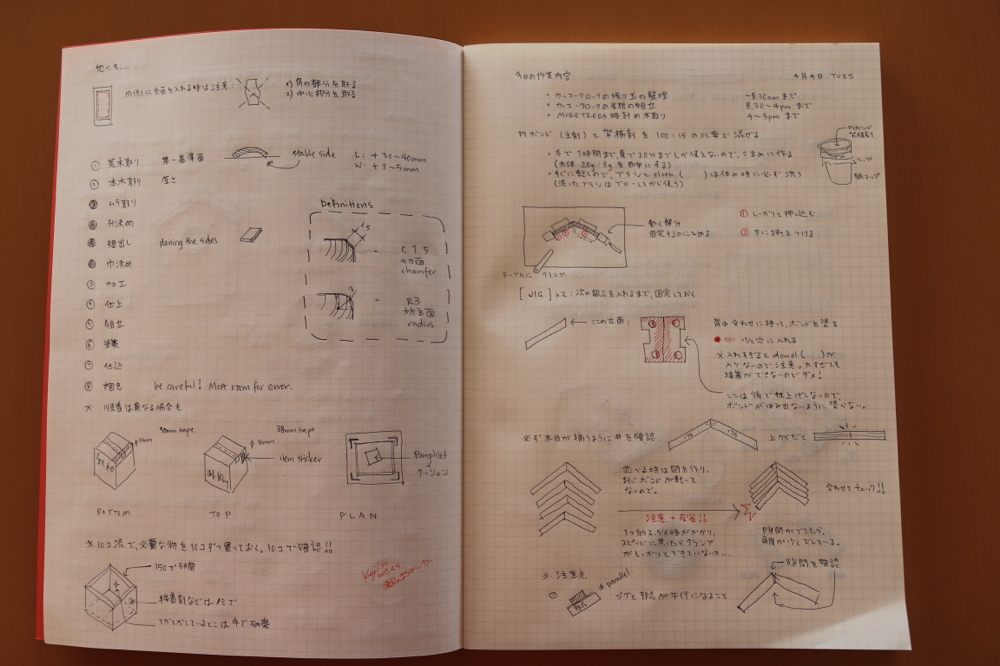 他にも....
内側に白面を入れる時は注意:
1) 角の部分を取る
2) 中心部分を取る
① 荒木取り 第一基準面
stable side
L: + 30~40mm
W: + 3~5mm
② 本木取り 厚さ
ムラ取り
分決め
短出し during the sides
巾決め
③ 加工
④ 仕上
⑤ 組立
⑥ 塗装
⑦ 仕込
⑧ 梱包 be careful! Most room for error.
Definitions
1.5
= C 1.5
切面
chamfer
3
= R3
坊主面
radius
※ 順番は異なる場合も
50mm tape
38mm tape
item sticker
Pamphlet
クッション
BOTTOM
TOP
PLAN
※10コ流で、必要な物を10コずつ置いておく。10コで確認!!
150で研磨
接着剤などは
てかてかしているとこは 手で研磨
今日の作業内容
4月4日 TUES
• カッコークロックの振り玉の整理 ~8.30am まで
• カッコークロックの屋根の組立 8.30~4pm まで
• MORETREES 時計の木取り 4~5pm まで
PIボンド (主剤) と 架橋剤 を 100:15 の比率で混ぜる
PIボンド
架橋剤
紙コップ
• 冬で1時間まで、夏で30分までしか使えないので、こまめに作る
(大体 20g:3g を目安にする)
• すぐに乾くので、ブラシと cloth ( ) は休み時に必ず洗う
(洗ったブラシはブローしてから使う)
動く部分
固定するのにしめる
① しっかりと押し込む
② 下に押さえつける
テーブルに クランプ
[JIG] x2 : 次の部品を入れるまで、固定しておく
この立面:
背中合わせに持って、ボンドを塗る
少し穴に入れる
※ 入れすぎると dowel ( ) が
入らないので注意。たすぎても
接着ができないのでダメ!
ここは後で仕上げしないので、
ボンドがはみ出ないように塗らない。
必ず木目が揃うように # を確認
上からだと
並べる時は間を作り、
まだボンドが乾いて
ないので。
注意 + 反省!!
合わせてチェック!!
隙間がでてたら、
角度が少しズレている。
※ 注意点
parallel
① ジグと部品が平行になること
隙間を確認